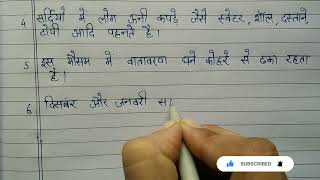 4 सर्दियों में लोग ऊनी कपड़े जैसे स्वेटर, शॉल, दस्ताने,
टोपी आदि पहनते हैं।
5 इस मौसम में वातावरण घने कोहरे से ढका रहता
है।
6 दिसंबर और जनवरी स
SUBSCRIBED